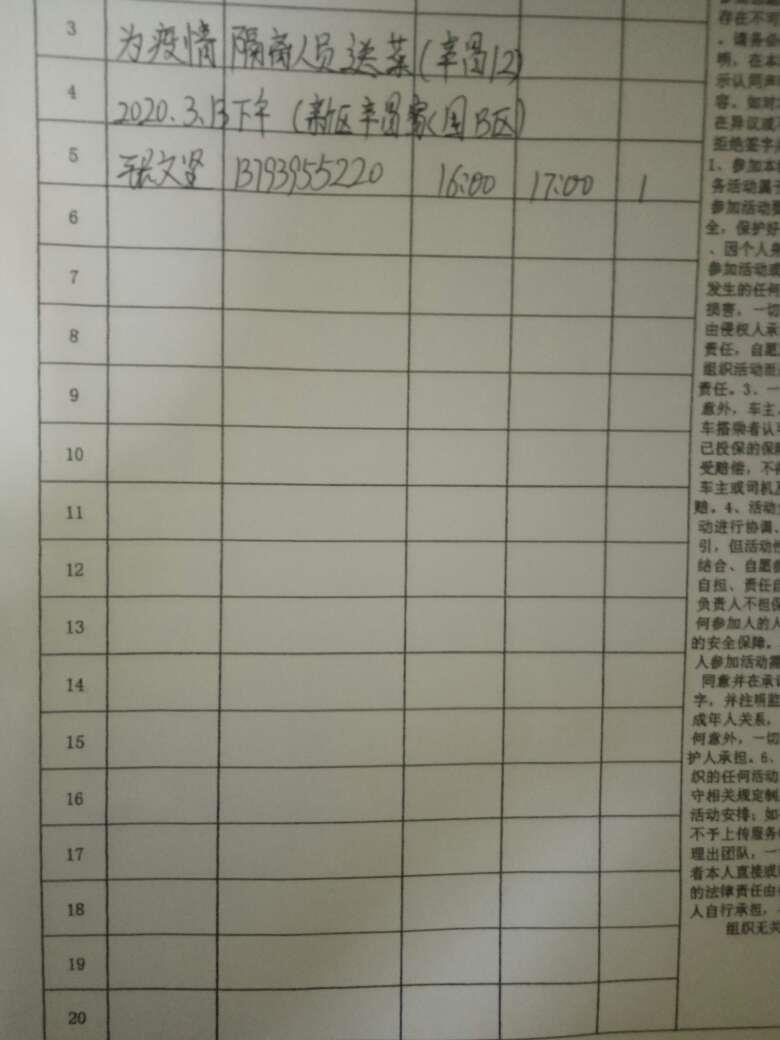 3 为疫情隔离人员送菜(辛冒12)
4 2020.3.13下午 (新区辛冒家园B区)
5 张文贤 13793955220 16:00 17:00 1
6
7
8
9
10
11
12
13
14
15
16
17
18
19
20
存在不可
，请务必
明，在本
示认同来
容。如对
在异议或不
拒绝签字
1、参加本
务活动属于
参加活动
全，保护好
、因个人
参加活动或
发生的任何
损害，一切
由侵权人承
责任，自愿
组织活动而
责任。3、一
意外，车主
车搭乘者认
已投保的保
受赔偿，不
车主或司机及
赔。4、活动
动进行协调、
引，但活动性
结合、自愿参
自担、责任自
负责人不担保
何参加人的人
的安全保障。
人参加活动需
同意并在承诺
字，并注明监
成年人关系，
何意外，一切
护人承担。6、
织的任何活动
守相关规定制
活动安排；如
不予上传服务
理出团队，一
着本人直接或
的法律责任由
人自行承担，
组织无关